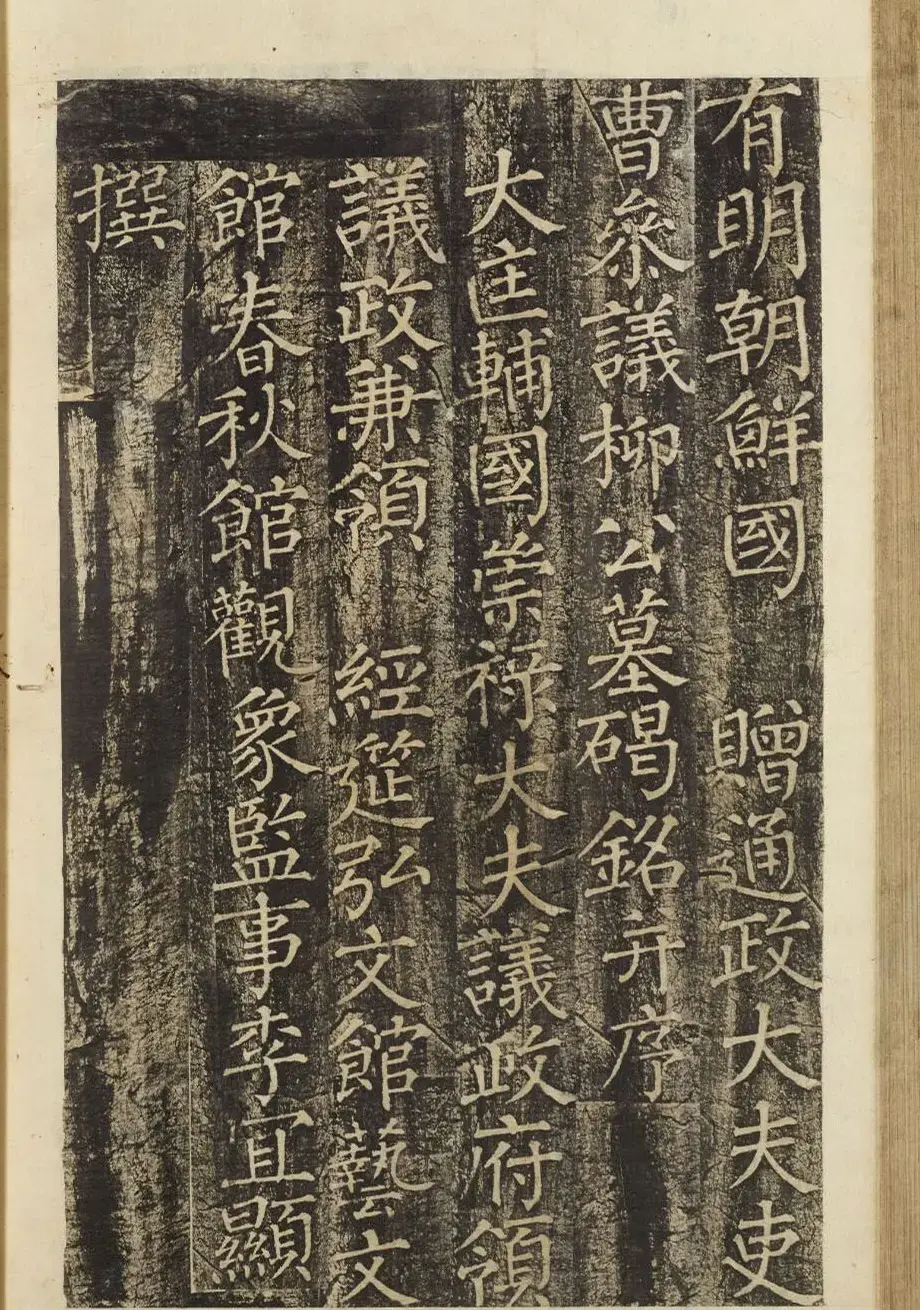 有明朝鮮國 贈通政大夫吏
曹叅議柳公墓碣銘并序
大匡輔國崇祿大夫議政府領
議政兼領 經筵弘文館藝文
館春秋館觀象監事李宜顯
撰